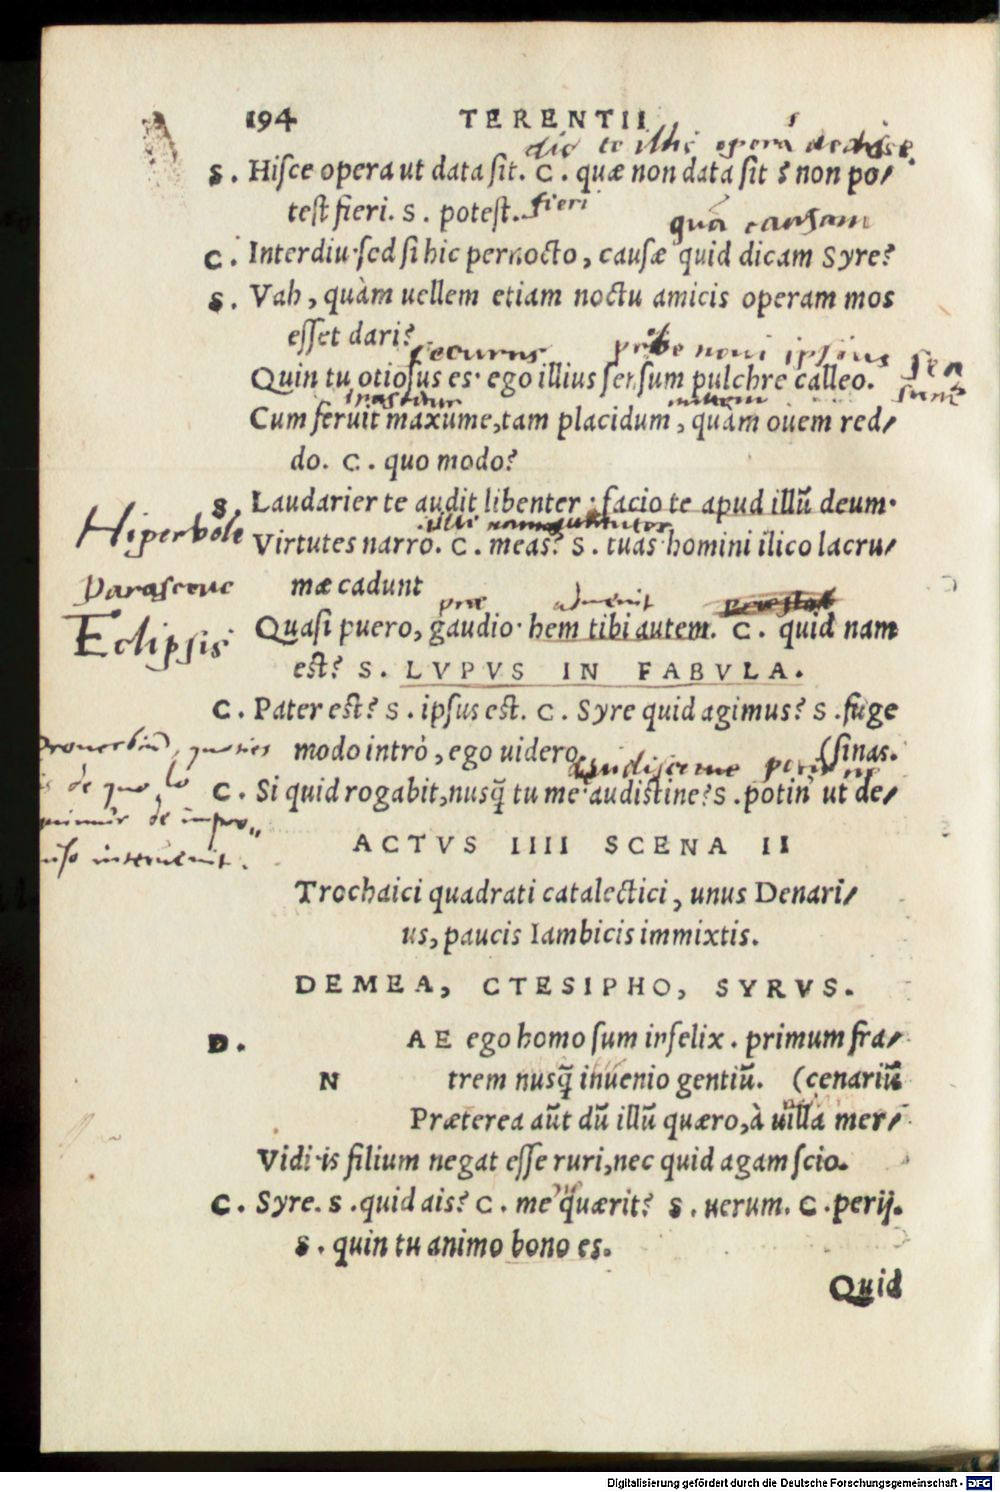 194 TERENTII
dic te illic operā dedisse
S. Hisce opera ut data sit. C. quæ non data sit? S non po/
test fieri. S. potest. fieri
quā causam
C. Interdiu·sed si hic pernocto, causæ quid dicam Syre?
S. Vah, quàm uellem etiam noctu amicis operam mos
esset dari?
securus probe noui ipsius sen
Quin tu otiosus es· ego illius sensum pulchre calleo. sum
Cum feruit maxume,tam placidum, quàm ouem red/
do. C. quo modo?
S. Laudarier te audit libenter: facio te apud illũ deum·
Hiperbole
Virtutes narro. C. meas? S. tuas· homini ilico lacru/
Parasceue mæ cadunt
præ aduenit
Eclipsis
Quasi puero, gaudio· hem tibi autem. C. quid nam
est? S. LVPVS IN FABVLA.
C. Pater est? S. ipsus est. C. Syre quid agimus? S. fuge
Prouerbiū, quoties
modo intrò, ego uidero. (sinas.
is de quo lo
C. Si quid rogabit,nusq̃ tu me·audistine? S. potin ut de/
quimur de impro„
uiso interuenit.
ACTVS IIII SCENA II
Trochaici quadrati catalectici, unus Denari/
us, paucis Iambicis immixtis.
DEMEA, CTESIPHO, SYRVS.
D. AE ego homo sum infelix. primum fra/
N trem nusq̃ inuenio gentiũ. (cenariũ
Præterea aũt dũ illũ quæro,à uilla mer/
Vidi·is filium negat esse ruri,nec quid agam scio.
C. Syre. S. quid ais? C. me quærit? S. uerum. C. perij.
S. quin tu animo bono es.
Quid
Digitalisierung gefördert durch die Deutsche Forschungsgemeinschaft - DFG